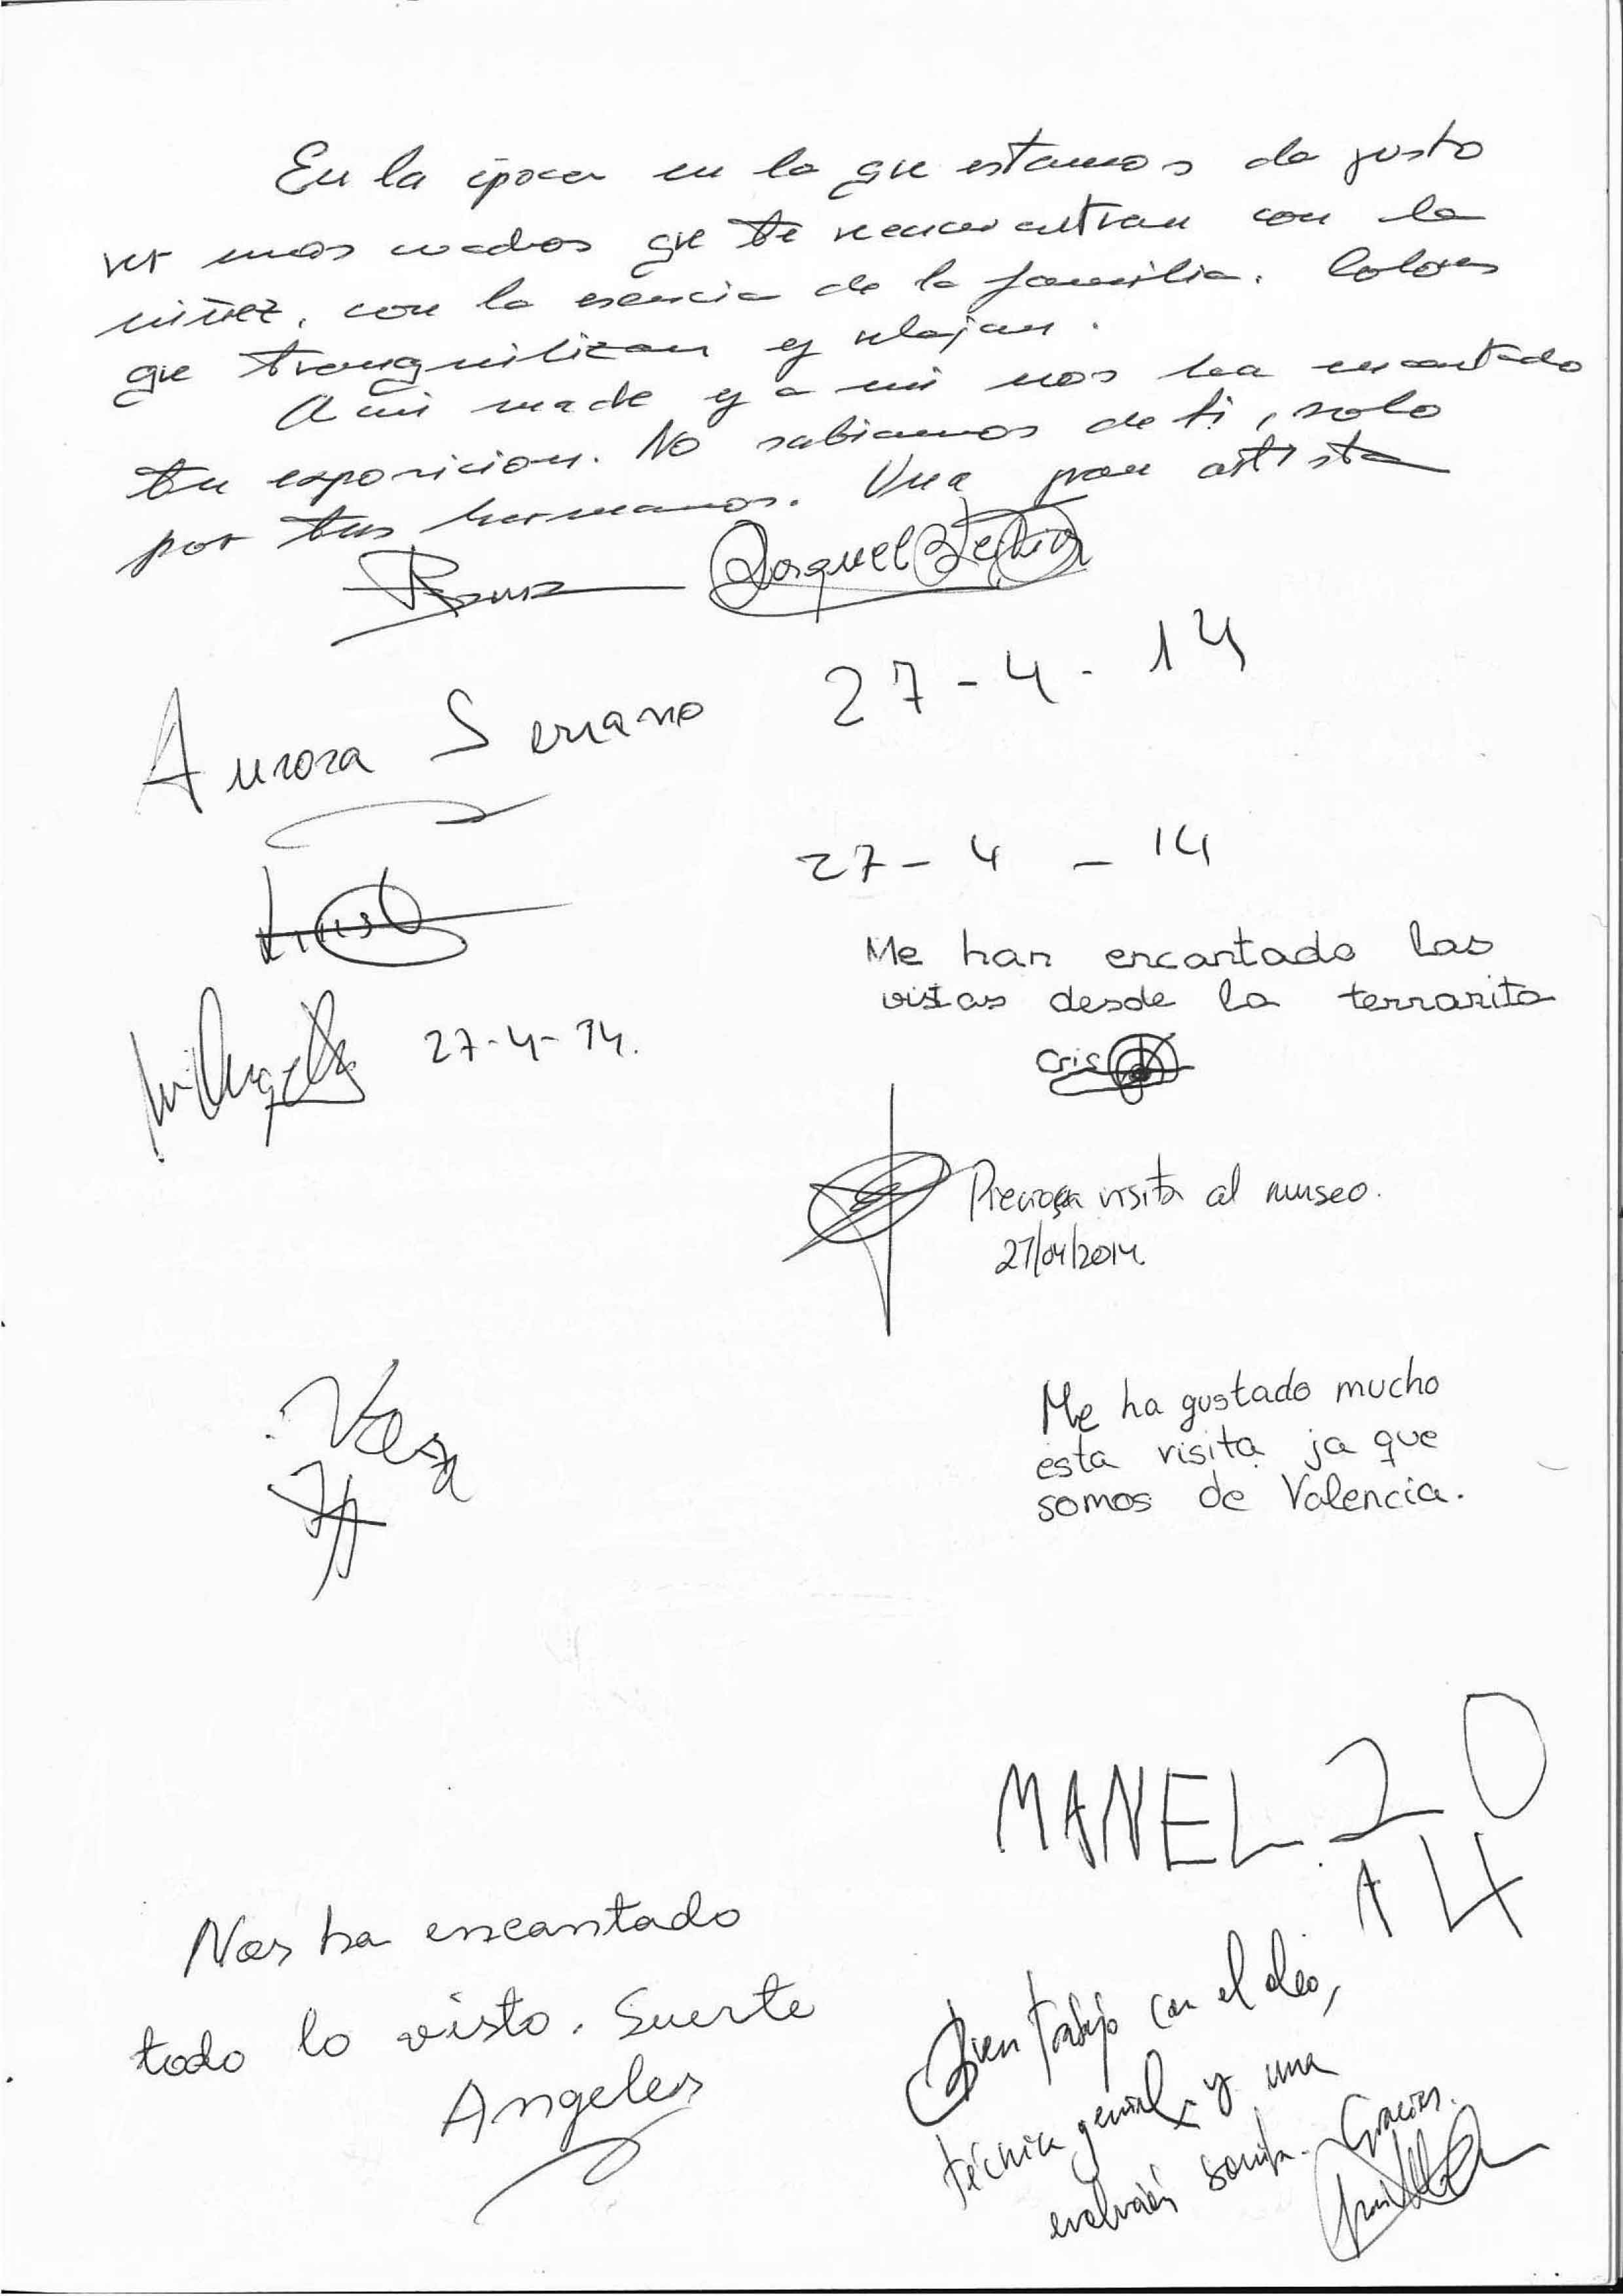 En la época en la que estamos da gusto
ver unos cuadros que te reencuentran con la
niñez, con la esencia de la familia. Colores
que tranquilizan y relajan.
A mi madre y a mi nos ha encantado
tu exposicion. No sabiamos de ti, solo
por tus hermanos. Una gran artista
Raquel
27-4-14
Aurora Serrano
27-4-14
Me han encantado las
vistas desde la terrazita
Cris
27-4-14.
Preciosa visita al museo.
27/04/2014.
Me ha gustado mucho
esta visita ja que
somos de Valencia.
MANEL 20
14
Nos ha encantado
todo lo visto. Suerte
Angeles
Buen trabajo con el óleo,
técnica genial y una
evolución bonita. Gracias.